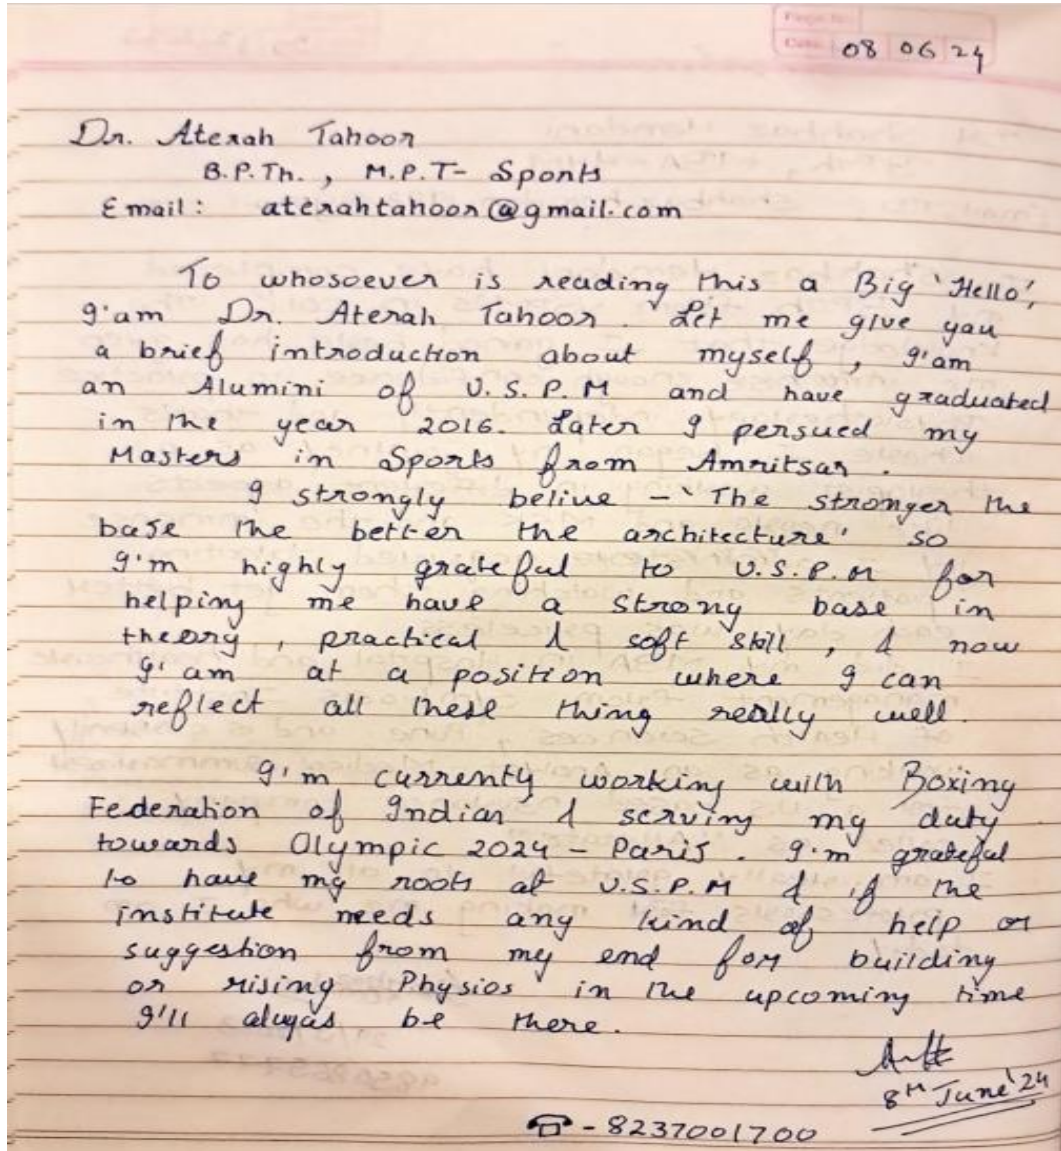 Page No.
Date 08 06 24
Dr. Aterah Tahoor
B.P.Th., M.P.T- Sports
Email: aterahtahoor@gmail.com
To whosoever is reading this a Big 'Hello',
I'am Dr. Aterah Tahoor. Let me give you
a brief introduction about myself, I'am
an Alumini of V.S.P.M and have graduated
in the year 2016. Later I persued my
Masters in Sports from Amritsar.
I strongly belive - 'The stronger the
base the better the architecture' so
I'm highly grateful to V.S.P.M for
helping me have a strong base in
theory, practical & soft skill, & now
I'am at a position where I can
reflect all these thing really well.
I'm currently working with Boxing
Federation of Indian & serving my duty
towards Olympic 2024 - Paris. I'm grateful
to have my roots at V.S.P.M & if the
institute needs any kind of help or
suggestion from my end for building
or rising Physios in the upcoming time
I'll alwyas be there.
8th June'24
☎ - 8237001700